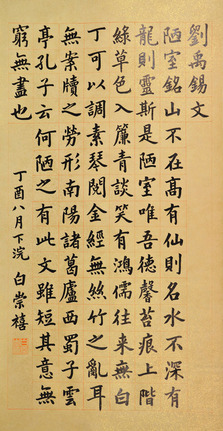 劉禹錫文
陋室銘山不在髙有仙則名水不深有
龍則靈斯是陋室唯吾德馨苔痕上階
綠草色入簾青談笑有鴻儒往來無白
丁可以調素琴閱金經無絲竹之亂耳
無案牘之勞形南陽諸葛廬西蜀子雲
亭孔子云何陋之有此文雖短其意無
窮無盡也
丁酉八月下浣 白崇禧